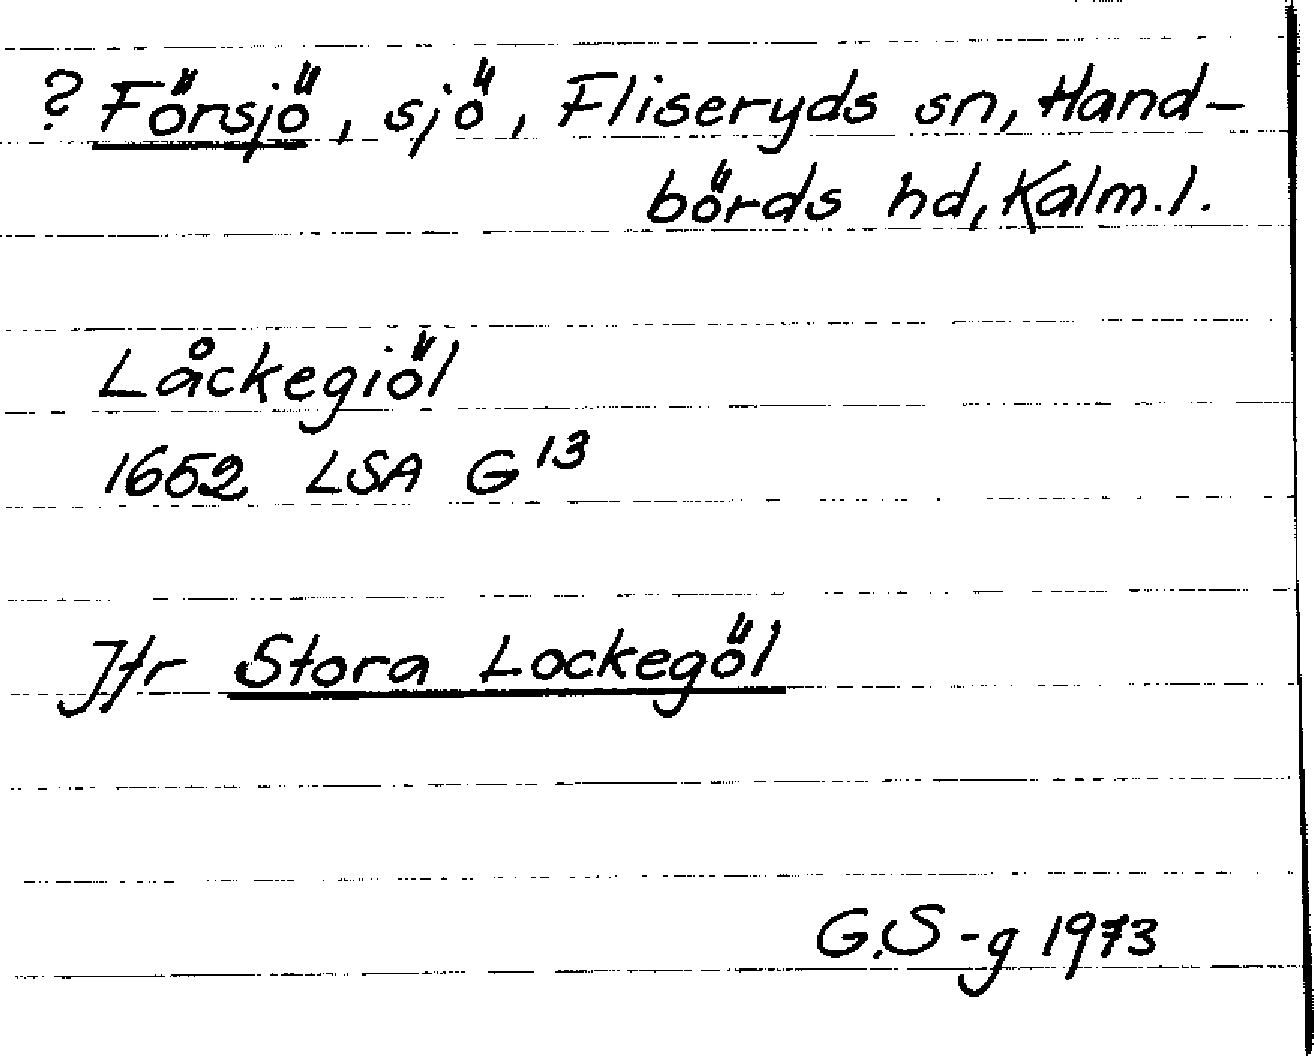 ? Försjö, sjö, Fliseryds sn, Hand-
börds hd, Kalm. l.
Låckegiöl
1652 LSA G 13
Jfr Stora Lockegöl
G.S-g 1973